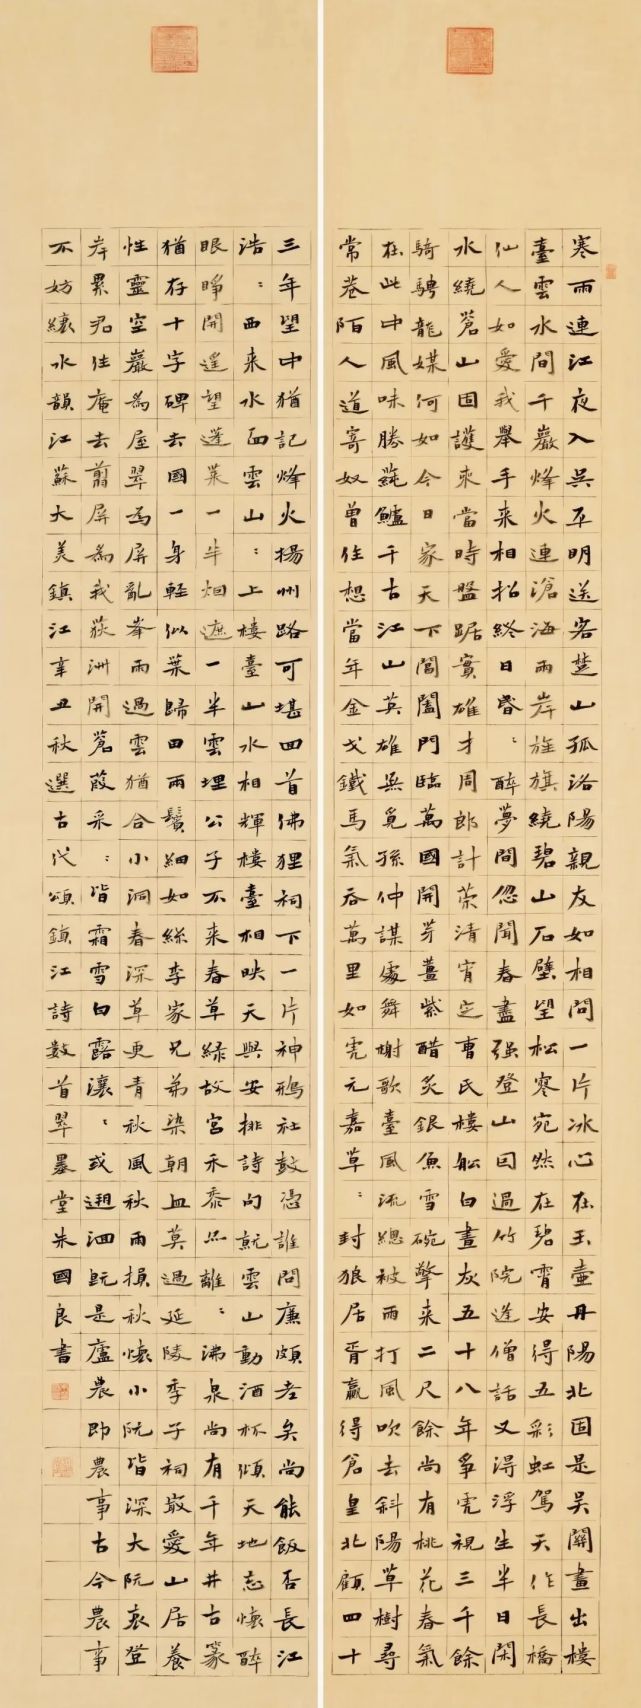 寒雨連江夜入吳平明送客楚山孤洛陽親友如相問一片冰心在玉壺丹陽北固是吳關畫出樓
臺雲水間千巖烽火連滄海兩岸旌旗繞碧山石壁望松寒宛然在碧霄安得五彩虹駕天作長橋
仙人如愛我舉手來相招終日昏：醉夢間忽聞春盡強登山回過竹院逢僧話又得浮生半日閑
水繞蒼山固護來當時盤踞實雄才周郎計策清宵定曹氏樓船白晝灰五十八年爭虎視三千餘
騎騁龍媒何如今日家天下閶闔門臨萬國開芽薑紫醋炙銀魚雪碗擎来二尺餘尚有桃花春氣
在此中風味勝蓴鱸千古江山英雄無覓孫仲謀處舞榭歌臺風流總被雨打風吹去斜陽草樹尋
常巷陌人道寄奴曾住想當年金戈鐵馬氣吞萬里如虎元嘉草：封狼居胥贏得倉皇北顧四十
三年望中猶記烽火揚州路可堪回首佛狸祠下一片神鴉社鼓憑誰問廉頗老矣尚能飯否長江
浩：西来水面雲山：上樓臺山水相輝樓臺相映天與安排詩句就雲山動酒杯傾天地忘懷醉
眼睜開遙望蓬萊一半烟遮一半雲埋公子不来春草綠故宮禾黍離：沸泉尚有千年井古篆
猶存十字碑去國一身輕似葉歸田兩鬢細如絲李家兄弟染朝血莫過延陵季子祠最愛山居養
性靈空巖為屋翠為屏亂峯雨過雲猶合小洞春深草更青秋風秋雨損秋懷小阮皆深大阮哀登
岸累君住庵去翦屏為我荻洲開蒼葭采：皆霜雪白露瀼：或遡洄既是廬農即農事古今農事
不妨水韻江蘇大美鎮江辛丑秋選古代頌鎮江詩數首翠墨堂朱國良書